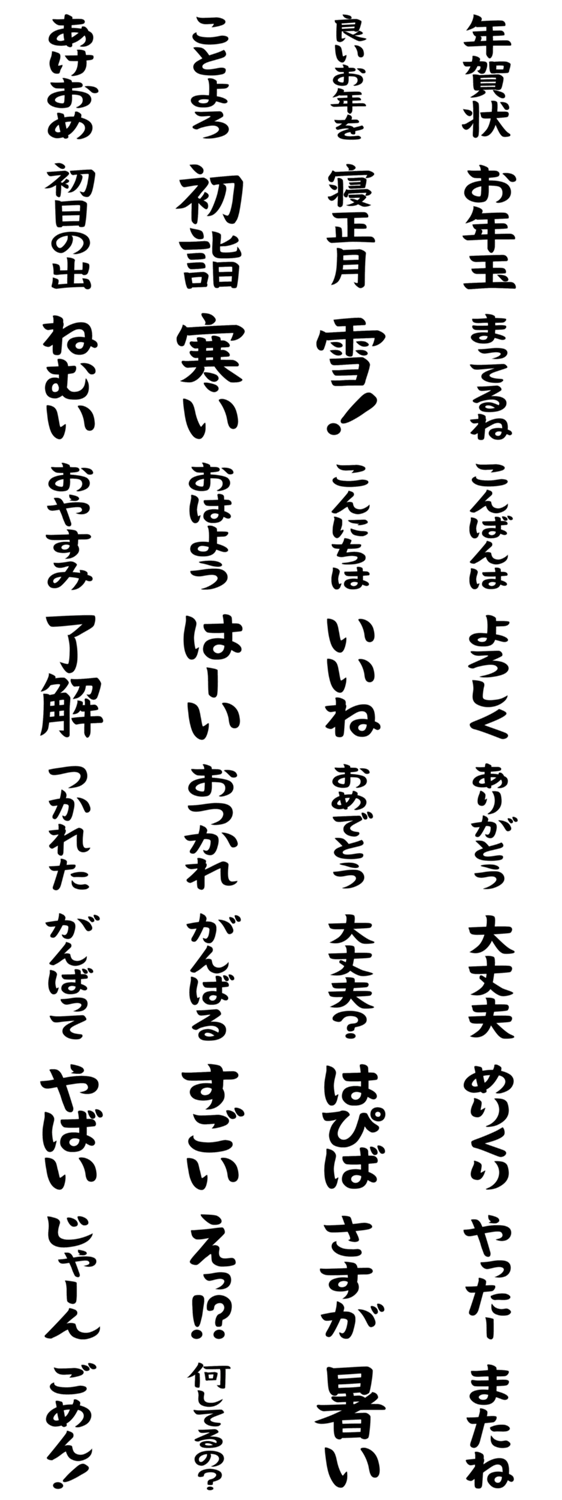 あけおめ
ことよろ
良いお年を
年賀状
初日の出
初詣
寝正月
お年玉
ねむい
寒い
雪!
まってるね
おやすみ
おはよう
こんにちは
こんばんは
了解
はーい
いいね
よろしく
つかれた
おつかれ
おめでとう
ありがとう
がんばって
がんばる
大丈夫?
大丈夫
やばい
すごい
はぴば
めりくり
じゃーん
えっ!?
さすが
やったー
ごめん!
何してるの?
暑い
またね